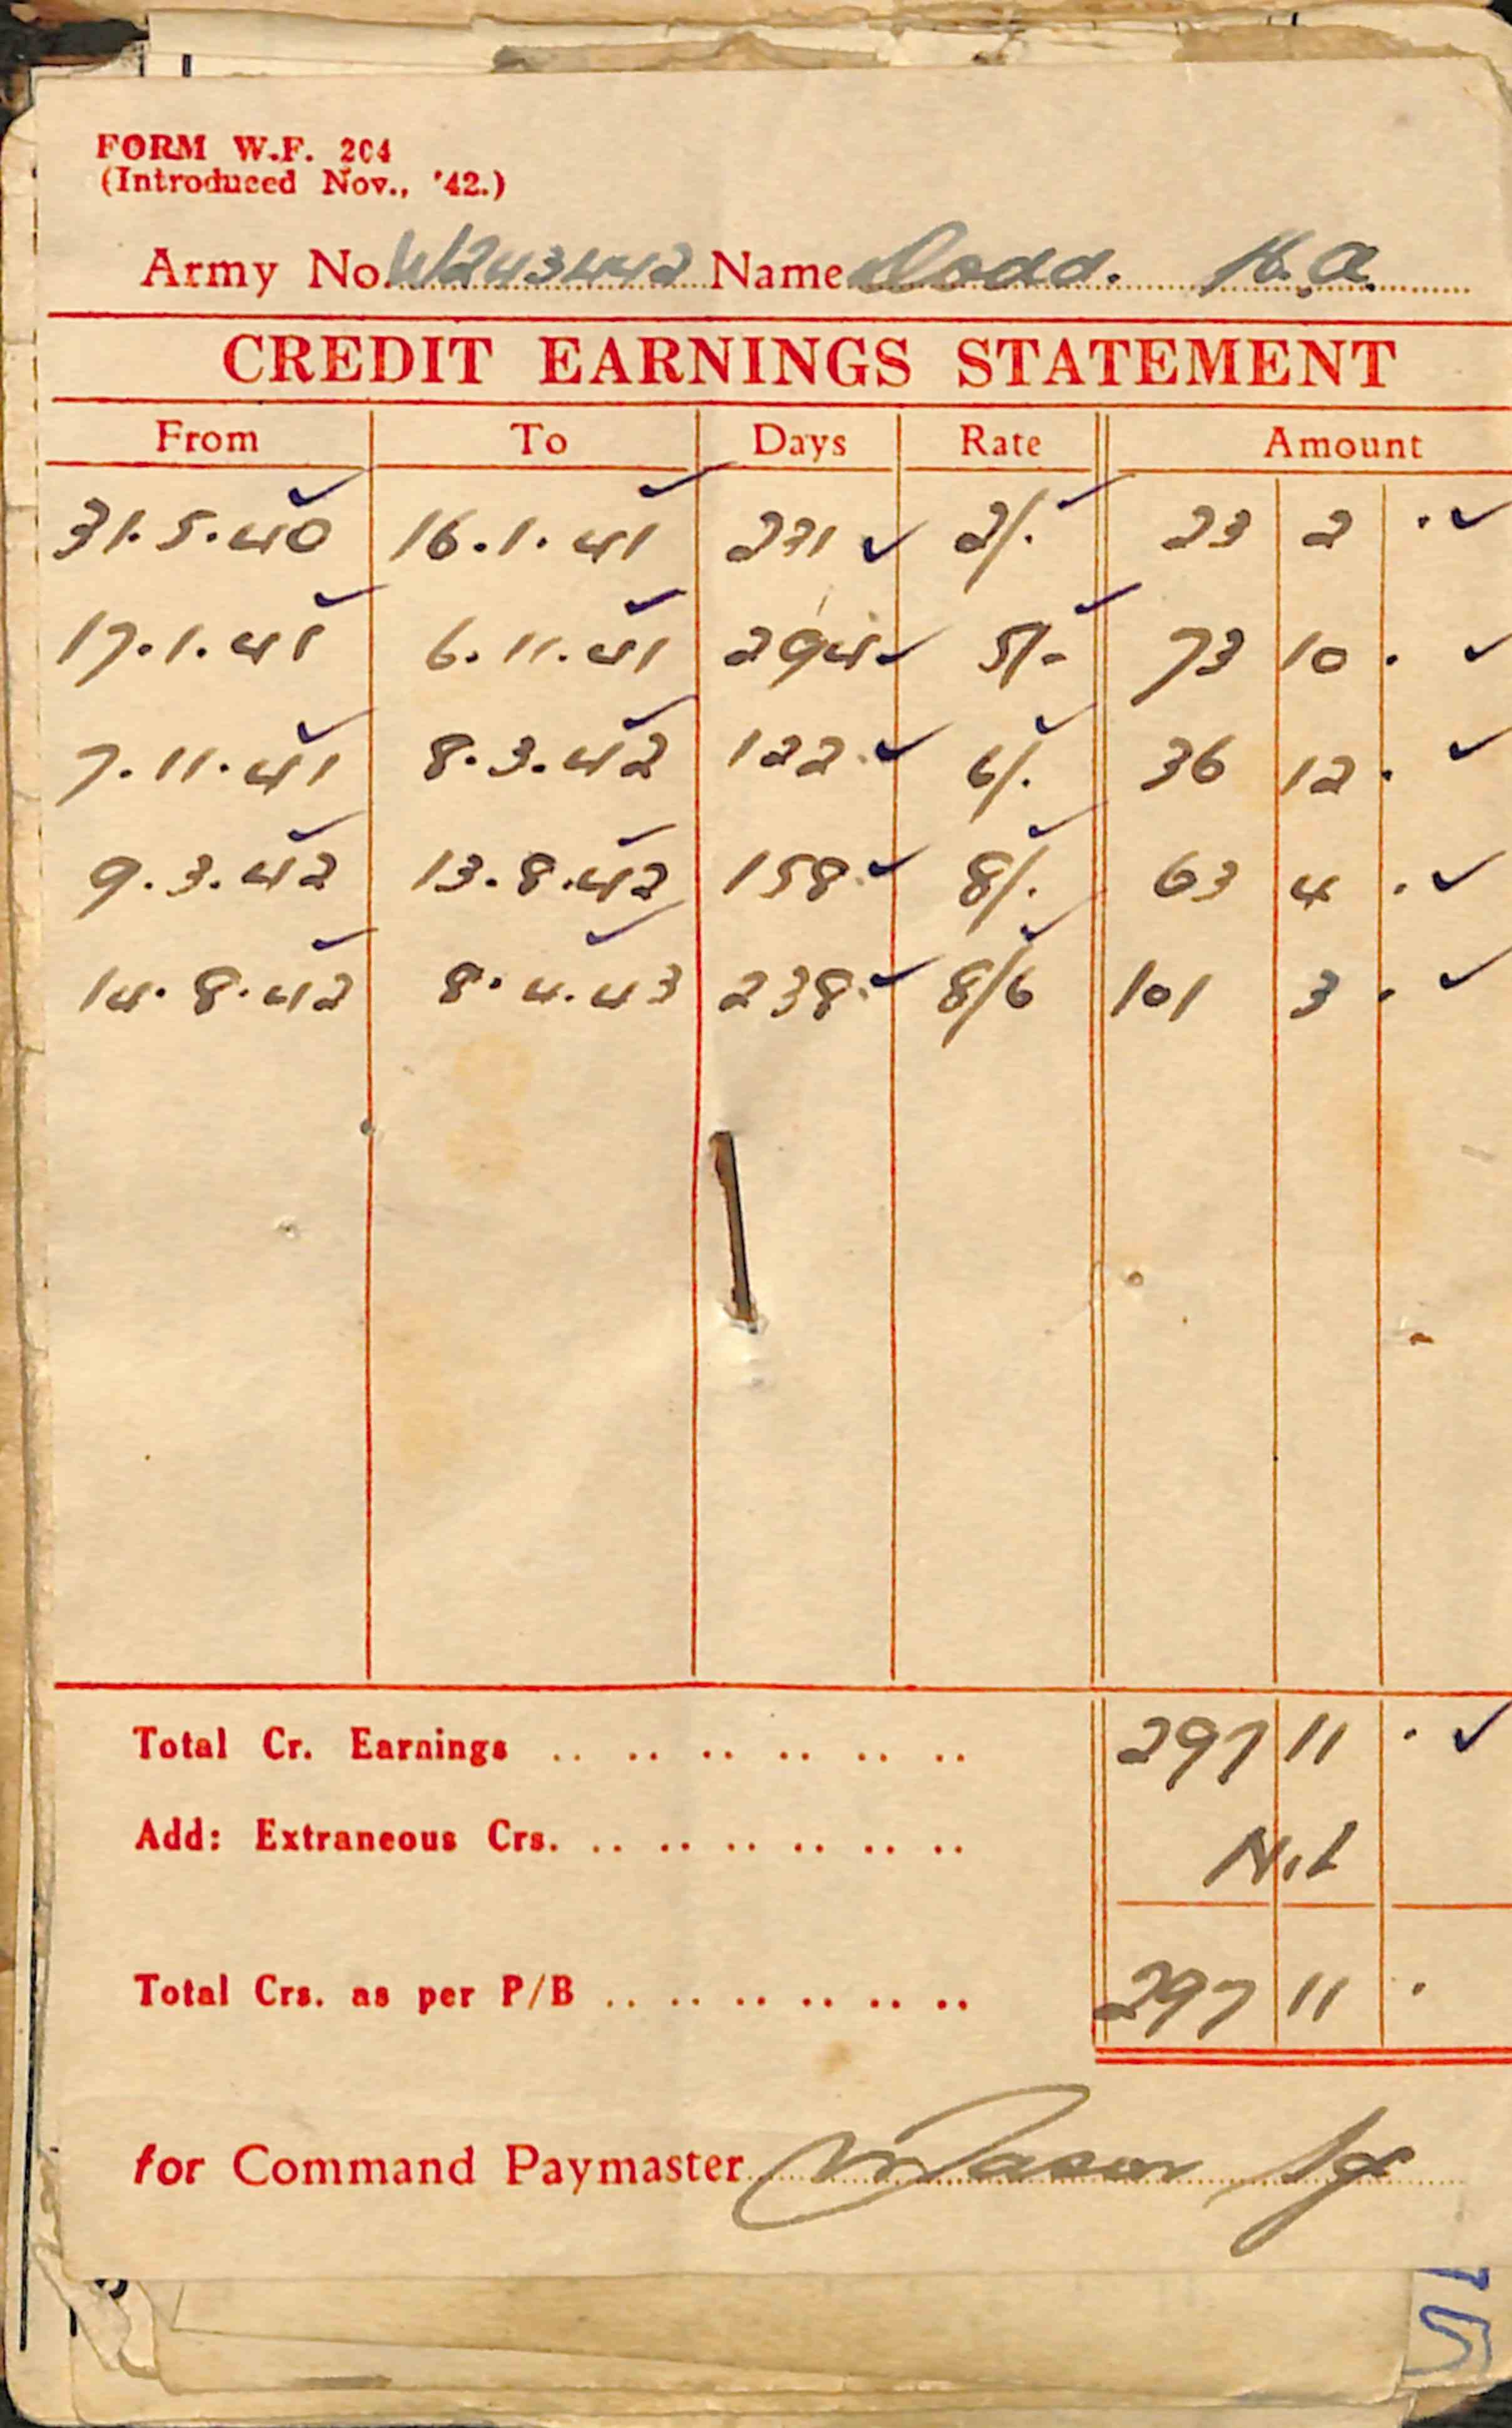 FORM W.F. 204
(Introduced Nov., '42.)
Army No. W243442 Name Dodd. H.A.
CREDIT EARNINGS STATEMENT
From To Days Rate Amount
31.5.40 16.1.41 231 2/. 23 2 .
17.1.41 6.11.41 294 5/- 73 10 .
7.11.41 8.3.42 122 6/. 36 12 .
9.3.42 13.8.42 158 8/. 63 4 .
14.8.42 8.4.43 238 8/6 101 3 .
Total Cr. Earnings .. .. .. .. .. .. .. 297 11 .
Add: Extraneous Crs. .. .. .. .. .. .. Nil
Total Crs. as per P/B .. .. .. .. .. .. 297 11 .
for Command Paymaster